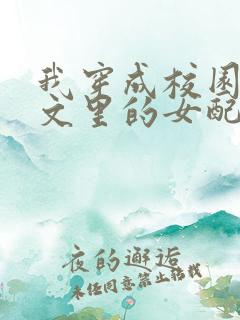 我穿成校园
文里的女配
夜的邂逅
未经同意禁止转载